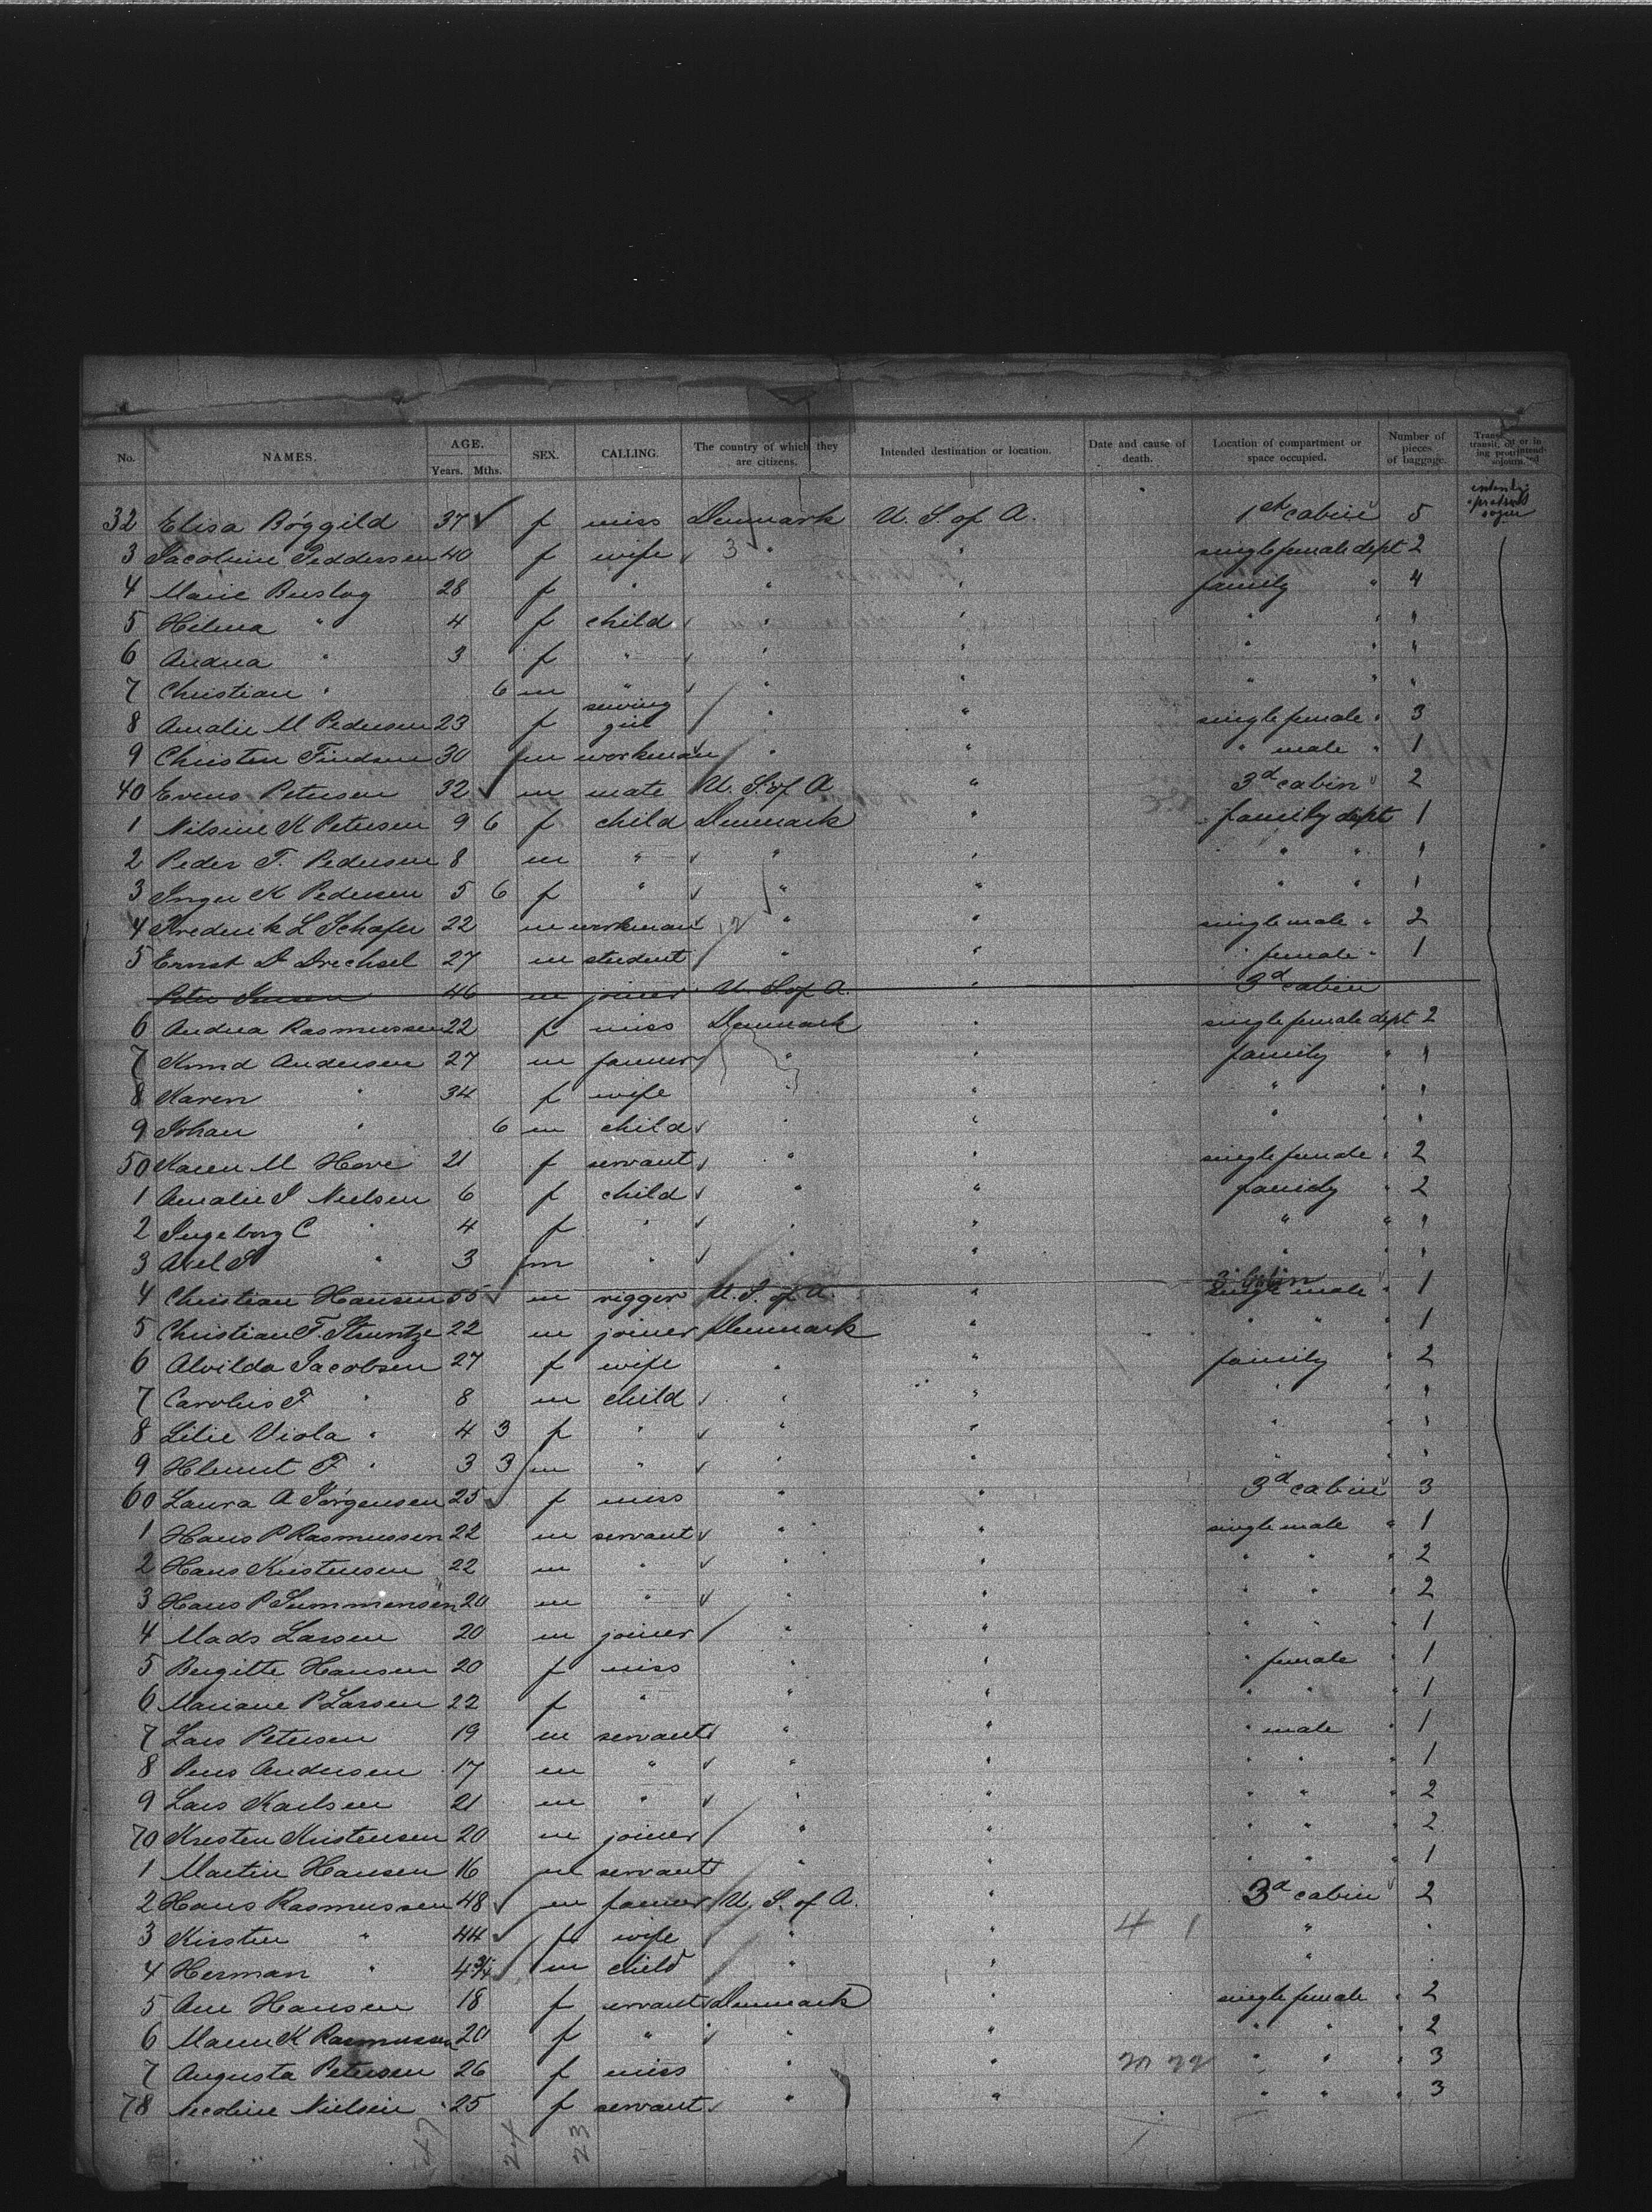 No. NAMES. AGE. Years. Mths. SEX. CALLING. The country of which they are citizens. Intended destination or location. Date and cause of death. Location of compartment or space occupied. Number of pieces of baggage.
32 Elisa Böggild 37 f miss Denmark U. S. of A. 1st cabin 5
3 Jacobine Peddersen 40 f wife 3 " " single female dept 2
4 Marie Buslog 28 f " " " family " 4
5 Helma " 4 f child " " " " "
6 Andrea " 3 f " " " " " "
7 Christian " 6 m " " " " " "
8 Amalie M Pedersen 23 f sewing girl " " single female " 3
9 Christen Findsen 30 m workman " " " male " 1
40 Evens Petersen 32 m mate U. S. of A " 3d cabin 2
1 Nilsine K Petersen 9 6 f child Denmark " family dept 1
2 Peder T. Pedersen 8 m " " " " " "
3 Inger K Pedersen 5 6 f " " " " " 1
4 Frederik L Schafer 22 m workman " " single male " 2
5 Ernst D Drechsel 27 m student " " female " 1
Peter Jensen 46 m joiner U. S. of A. " 3d cabin
6 Andrea Rasmussen 22 f miss Denmark " single female dept 2
7 Knud Andersen 27 m farmer " " family " 1
8 Karen " 34 f wife " " " " "
9 Johan " 6 m child " " " " "
50 Karen M Hove 21 f servant " " single female " 2
1 Amalie J Nielsen 6 f child " " family " 2
2 Ingeborg C " 4 f " " " " " "
3 Axel S " 3 m " " " " "
4 Christian Hansen 55 m rigger U. S. of A. " 3d Cabin single male " 1
5 Christian F. Struntze 22 m joiner Denmark " " " 1
6 Alvilda Jacobsen 27 f wife " " family " 2
7 Carolus F " 8 m child " " " " "
8 Lilie Viola " 4 3 f " " " " " "
9 Helmut F " 3 3 m " " " " " "
60 Laura A Jörgensen 25 f miss " " 3d cabin 3
1 Hans P Rasmussen 22 m servant " " single male " 1
2 Hans Kristensen 22 m " " " " " " 2
3 Hans P Summensen 20 m " " " " " " 2
4 Mads Larsen 20 m joiner " " " " 1
5 Birgitte Hansen 20 f miss " " " female " 1
6 Mariane P Larsen 22 f " " " " " " 1
7 Lars Petersen 19 m servant " " " male " 1
8 Jens Andersen 17 m " " " " " 1
9 Lars Karlsen 21 m " " " " " " 2
70 Kresten Kristensen 20 m joiner " " " " 2
1 Martin Hansen 16 m servant " " " " " 1
2 Hans Rasmussen 48 m farmer U. S. of A. " 3d cabin 2
3 Kirsten " 44 f wife " " 4 1 " "
4 Herman " 4 3/4 m child " " "
5 Ane Hansen 18 f servant Denmark " single female " 2
6 Maren K Rasmussen 20 f " " " " " " 2
7 Augusta Petersen 26 f miss " " 20 22 " " " 3
78 Nicoline Nielsen 25 f servant " " " " " 3
47 24 23